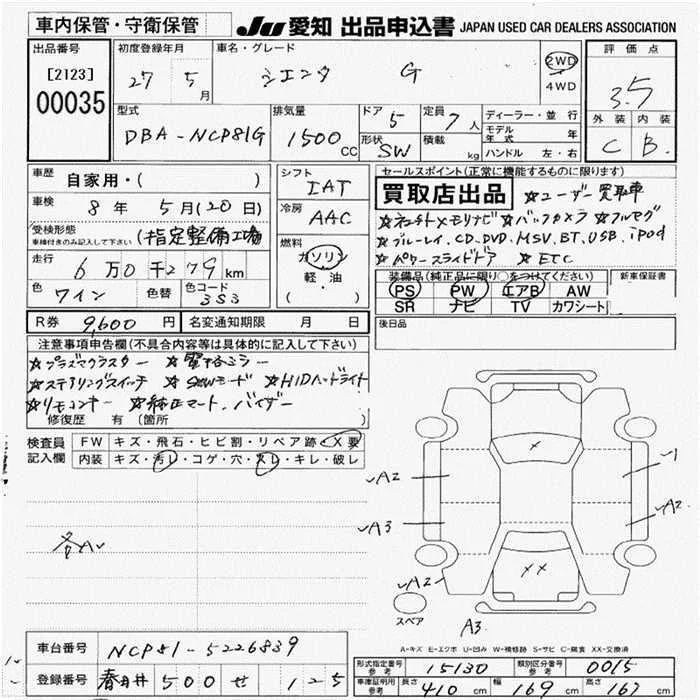 車内保管・守衛保管 JU 愛知 出品申込書 JAPAN USED CAR DEALERS ASSOCIATION
出品番号 [2123] 00035
初度登録年月 27 5月
車名・グレード シエンタ G 2WD 4WD
評価点 3.5
外装 C 内装 B.
型式 DBA-NCP81G
排気量 1500 CC
ドア 5 定員 7人
形状 SW 積載 kg
ディーラー・並行
モデル年式 年
ハンドル 左・右
車歴 自家用・( )
車検 8年 5月(20日)
受検形態 車検付きのみ記入して下さい (指定整備工場
走行 6万0千279km
色 ワイン 色替 色コード 3S3
シフト IAT
冷房 AAC
燃料 ガソリン 軽・油 ( )
R券 9,600円 名変通知期限 月 日
セールスポイント(正常に機能するものに限ります)
買取店出品 ☆ユーザー買取車
☆ブルーレイ.CD.DVD.MSV.BT.USB.iPod
☆パワースライドドア ☆ETC
装備品(純正品に限り○をつけてください) 新車保証書
PS PW エアB AW
SR ナビ TV カワシート
後日品
注意事項申告欄(不具合内容等は具体的に記入して下さい)
☆プラズマクラスター ☆電格ミラー
☆ステアリングスイッチ ☆HIDヘッドライト
☆リモコンキー ☆純正マット.バイザー
修復歴 有(箇所
検査員記入欄 FW キズ・飛石・ヒビ割・リペア跡・X要
内装 キズ・汚レ・コゲ・穴・スレ・キレ・破レ
各A
X
A2
1
A2
A3
XX
A2
スペア
A3.
A-キズ E-エクボ U-凹み W-補修跡 S-サビ C-腐食 XX-交換済
車台番号 NCP81-5226839
登録番号 春日井 500 せ 125
形式指定番号 参考 15130 類別区分番号 参考 0015
車庫証明用 参考 長さ 410cm 幅 169cm 高さ 167cm